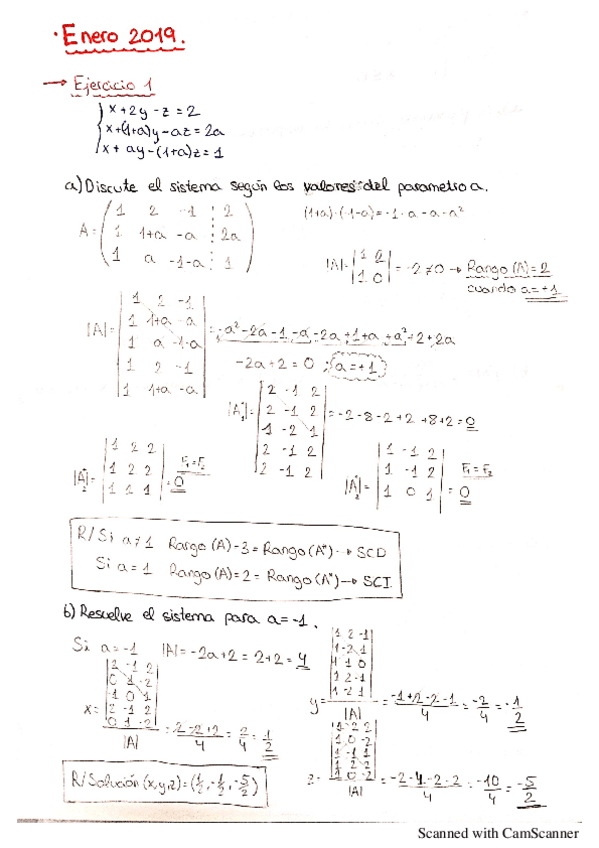 Enero 2019.
→ Ejercicio 1
x+2y-z=2
x+(1+a)y-az=2a
x+ay-(1+a)z=1
a) Discute el sistema según los valores del parametro a.
A= ( 1 2 -1 ⋮ 2
1 1+a -a ⋮ 2a
1 a -1-a ⋮ 1 )
(1+a)·(-1-a)=-1-a-a-a²
|A|= |1 2
1 0| = -2≠0 → Rango (A)=2
cuando a=+1
|A|= |1 2 -1
1 1+a -a
1 a -1-a
1 2 -1
1 1+a -a| = -a²-2a-1-a-2a+1+a+a²+2+2a
-2a+2=0; a=+1
|A₁*|= |2 -1 2
2 -1 2
1 -2 1
2 -1 2
2 -1 2| = -2-8-2+2+8+2=0
|A₂*|= |1 2 2
1 2 2
1 1 1| F₁=F₂ = 0
|A₃*|= |1 -1 2
1 -1 2
1 0 1| F₁=F₂ = 0
R/ Si a≠1 Rango (A)=3=Rango(A*) → SCD
Si a=1 Rango(A)=2=Rango(A*) → SCI
b) Resuelve el sistema para a=-1.
Si a=-1 |A|=-2a+2=2+2=4
x= |2 -1 2
0 1 -2
1 0 1
2 -1 2
0 1 -2| / |A| = 2-2+2 / 4 = 2/4 = 1/2
y= |1 2 -1
1 -2 1
1 1 0
1 2 -1
1 -2 1| / |A| = -1+2-2-1 / 4 = -2/4 = -1/2
z= |1 2 2
1 0 -2
1 -1 1
1 2 2
1 0 -2| / |A| = -2-4-2-2 / 4 = -10/4 = -5/2
R/ Solución (x,y,z)=(1/2,-1/2,-5/2)
Scanned with CamScanner